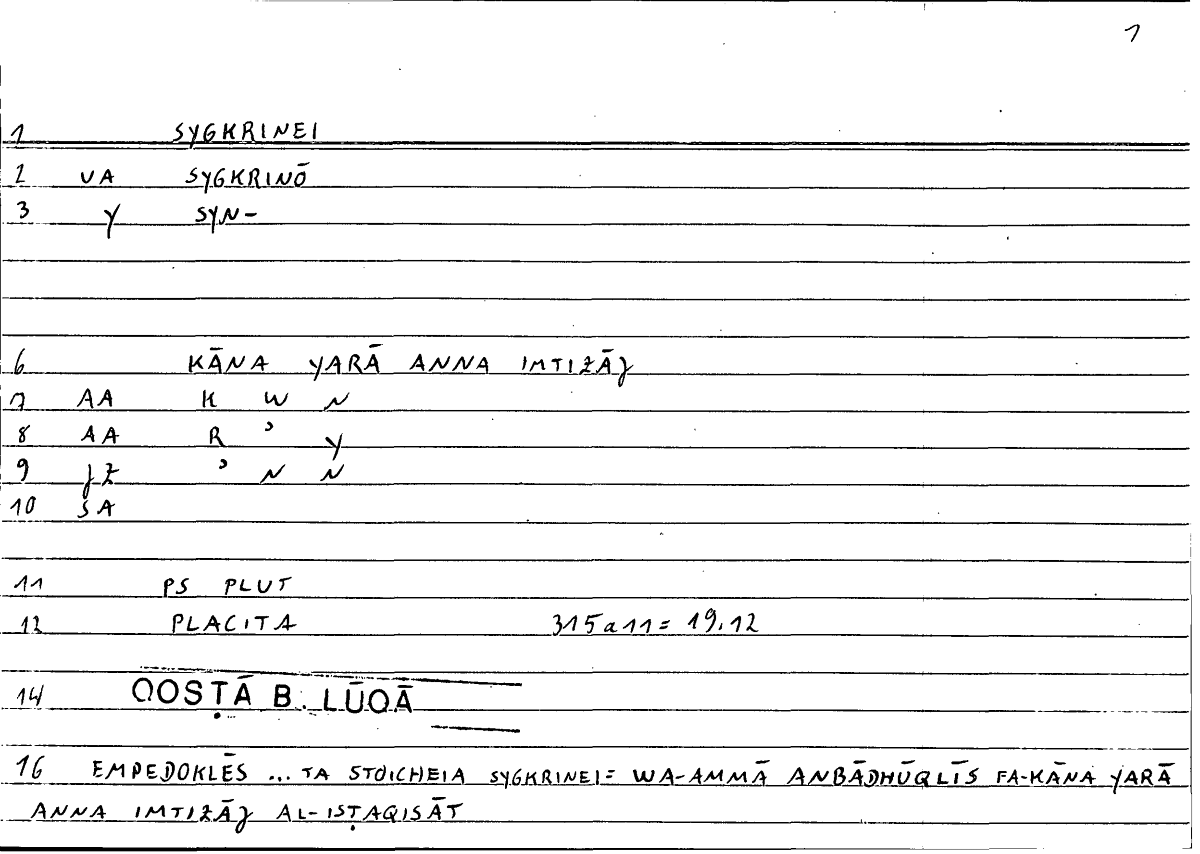 1
1 SYGKRINEI
2 VA SYGKRINŌ
3 Y SYN-
6 KĀNA YARĀ ANNA IMTIZĀJ
7 AA K W N
8 AA R ʾ Y
9 JZ ʾ N N
10 SA
11 PS PLUT
12 PLACITA 315a11= 19.12
14 QOSṬĀ B. LŪQĀ
16 EMPEDOKLĒS ... TA STOICHEIA SYGKRINEI= WA-AMMĀ ANBĀDHŪQLĪS FA-KĀNA YARĀ
ANNA IMTIZĀJ AL-ISṬAQISĀT